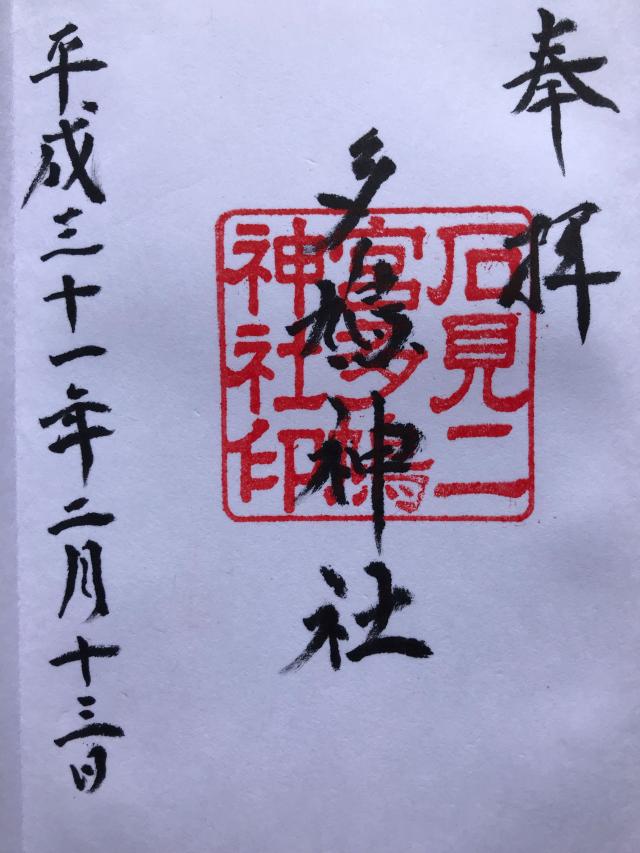 奉拝
石見二
宮多鳩
神社印
多鳩神社
平成三十一年二月十三日